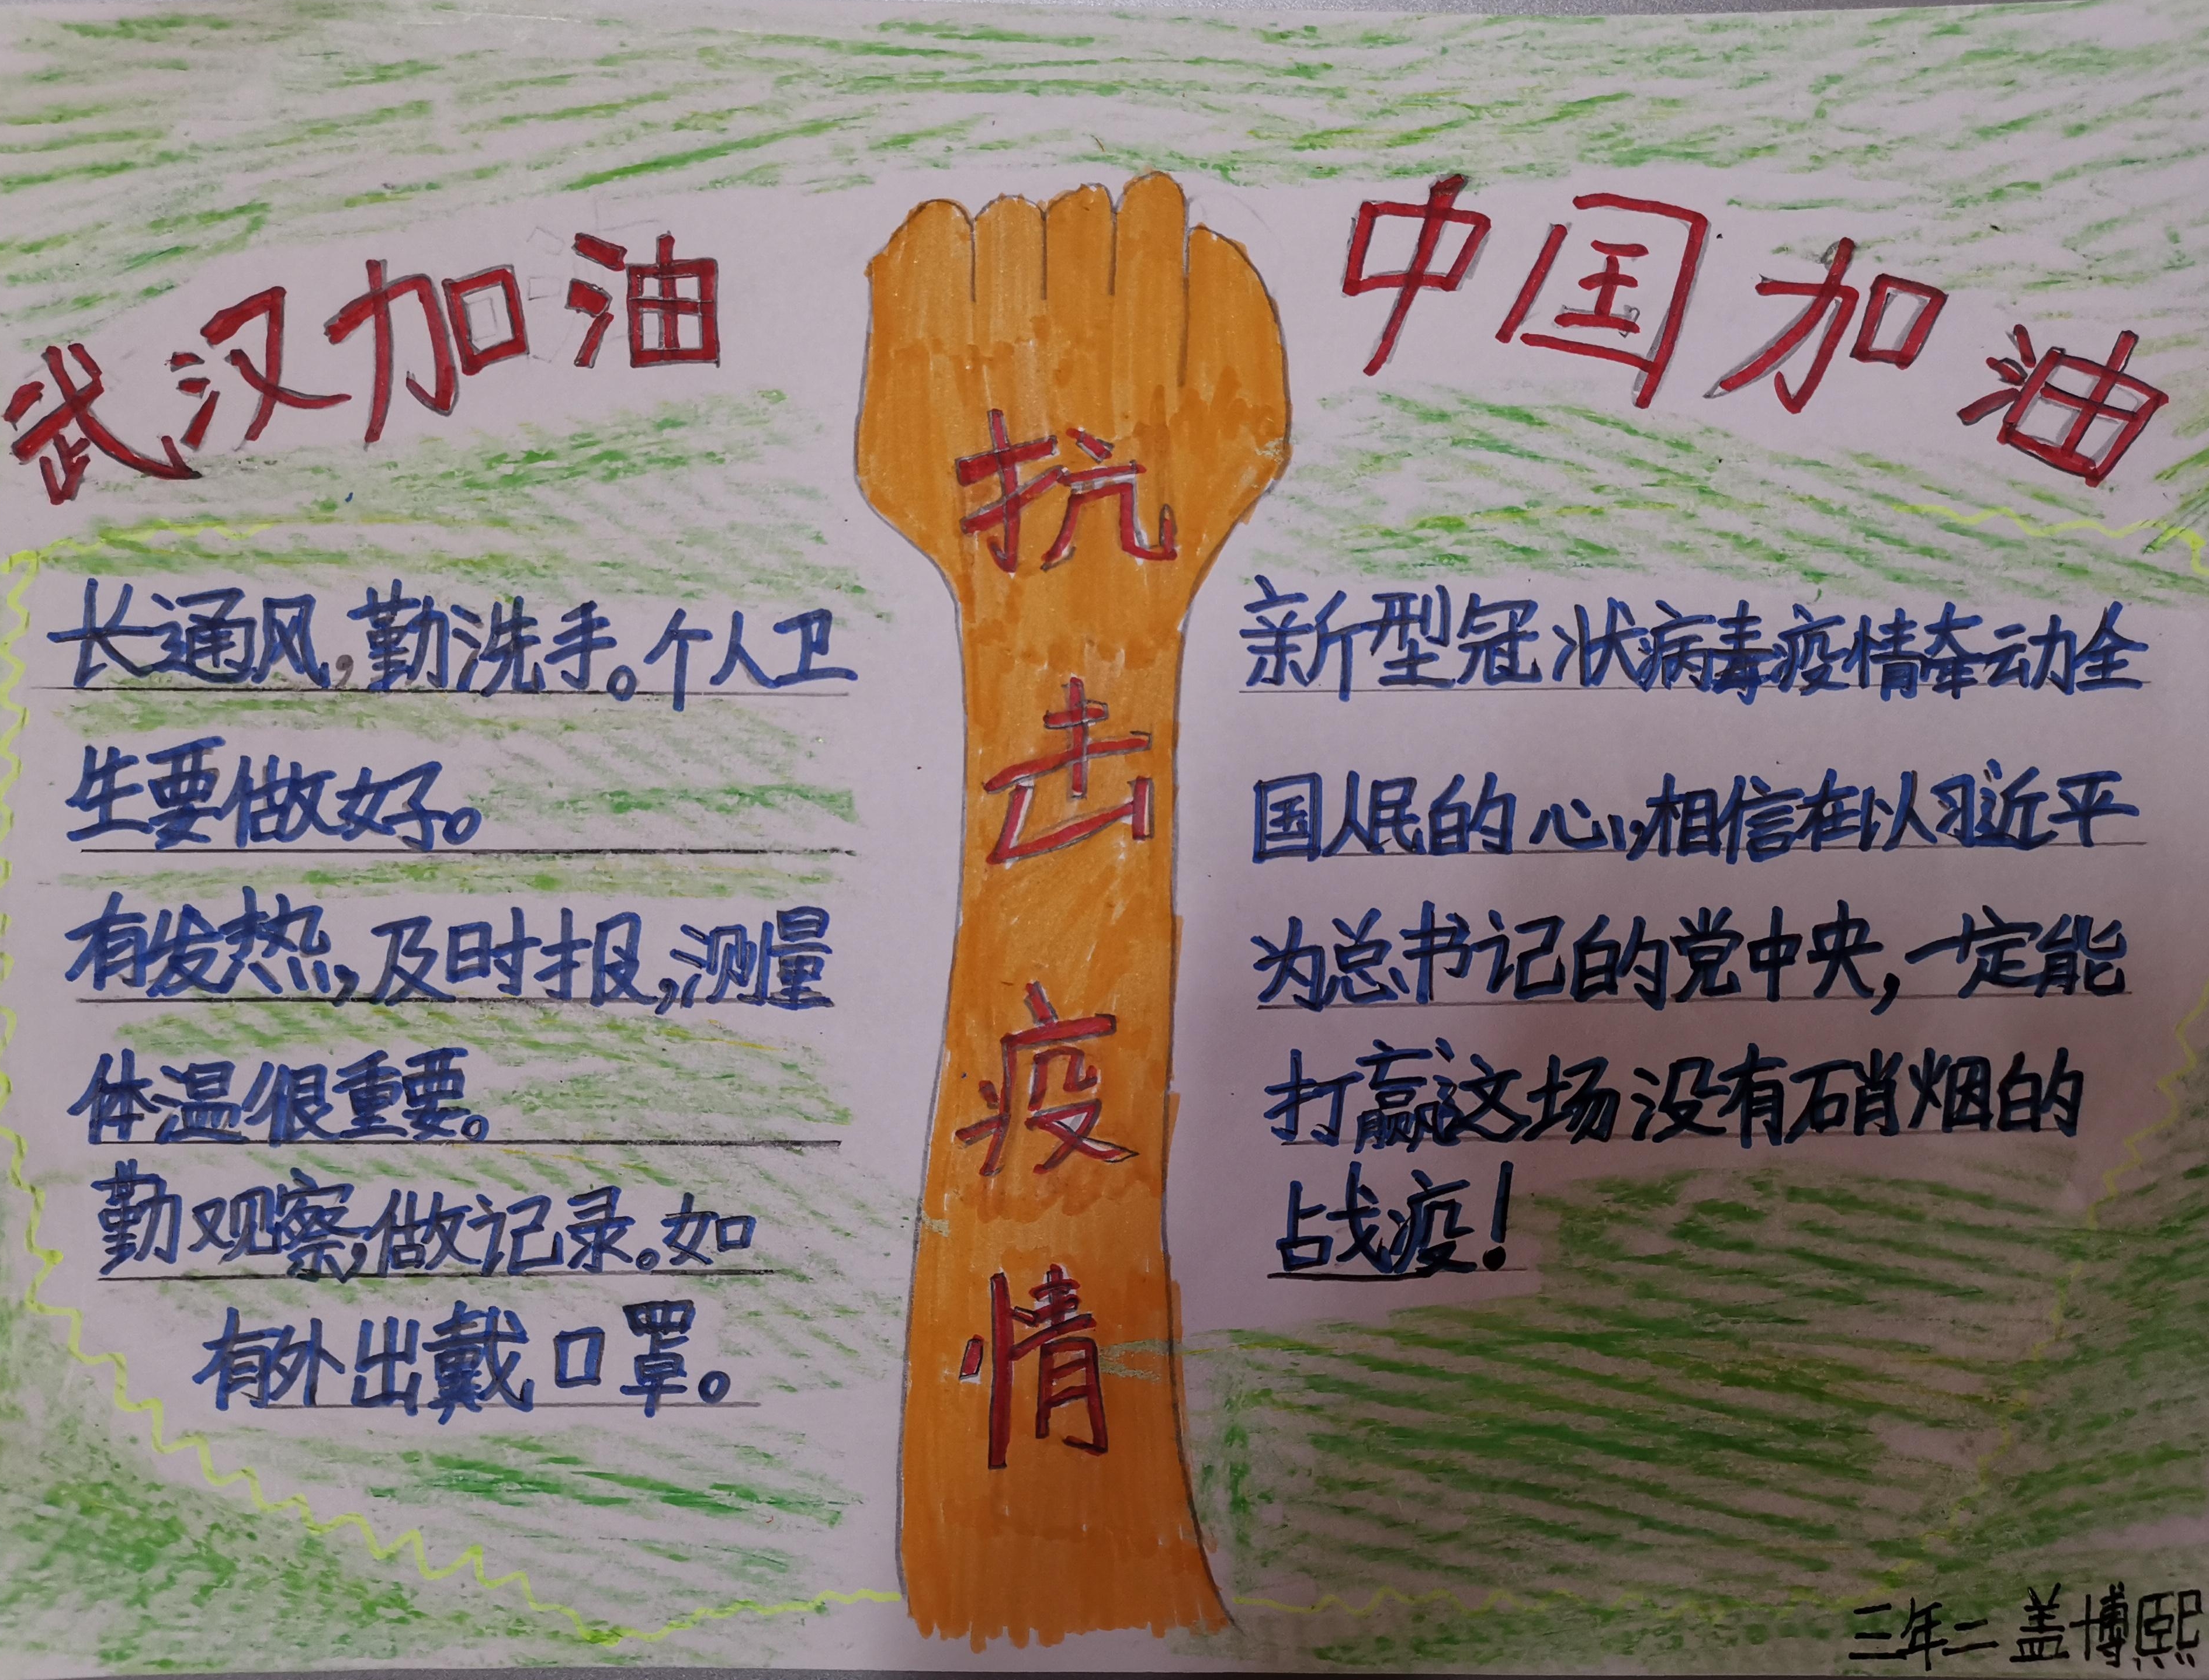 武汉加油
中国加油
抗击疫情
长通风,勤洗手。个人卫
生要做好。
有发热,及时报,测量
体温很重要。
勤观察,做记录。如
有外出戴口罩。
新型冠状病毒疫情牵动全
国人民的心,相信在以习近平
为总书记的党中央,一定能
打赢这场没有硝烟的
战疫!
三年二 盖博熙